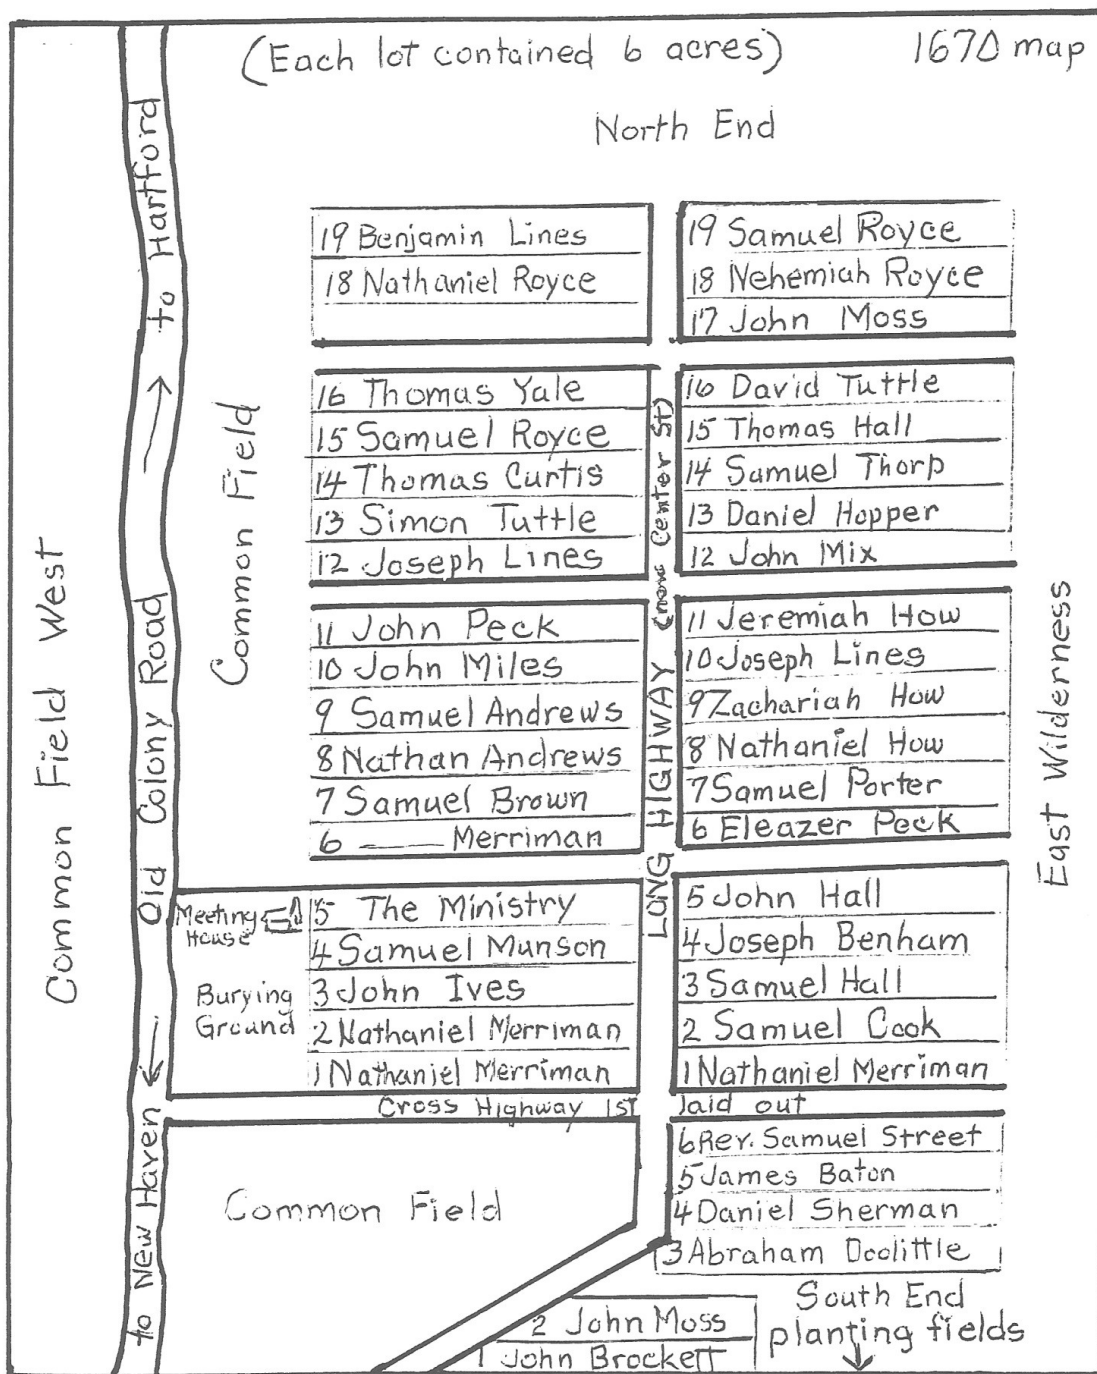 (Each lot contained 6 acres)
1670 map
North End
to Hartford
Old Colony Road
to New Haven
Common Field West
Common Field
19 Benjamin Lines
18 Nathaniel Royce
16 Thomas Yale
15 Samuel Royce
14 Thomas Curtis
13 Simon Tuttle
12 Joseph Lines
11 John Peck
10 John Miles
9 Samuel Andrews
8 Nathan Andrews
7 Samuel Brown
6 —— Merriman
Meeting
House
Burying
Ground
5 The Ministry
4 Samuel Munson
3 John Ives
2 Nathaniel Merriman
1 Nathaniel Merriman
LONG HIGHWAY (now Center St)
19 Samuel Royce
18 Nehemiah Royce
17 John Moss
16 David Tuttle
15 Thomas Hall
14 Samuel Thorp
13 Daniel Hopper
12 John Mix
11 Jeremiah How
10 Joseph Lines
9 Zachariah How
8 Nathaniel How
7 Samuel Porter
6 Eleazer Peck
5 John Hall
4 Joseph Benham
3 Samuel Hall
2 Samuel Cook
1 Nathaniel Merriman
East Wilderness
Cross Highway 1st laid out
Common Field
6 Rev. Samuel Street
5 James Baton
4 Daniel Sherman
3 Abraham Doolittle
2 John Moss
1 John Brockett
South End
planting fields